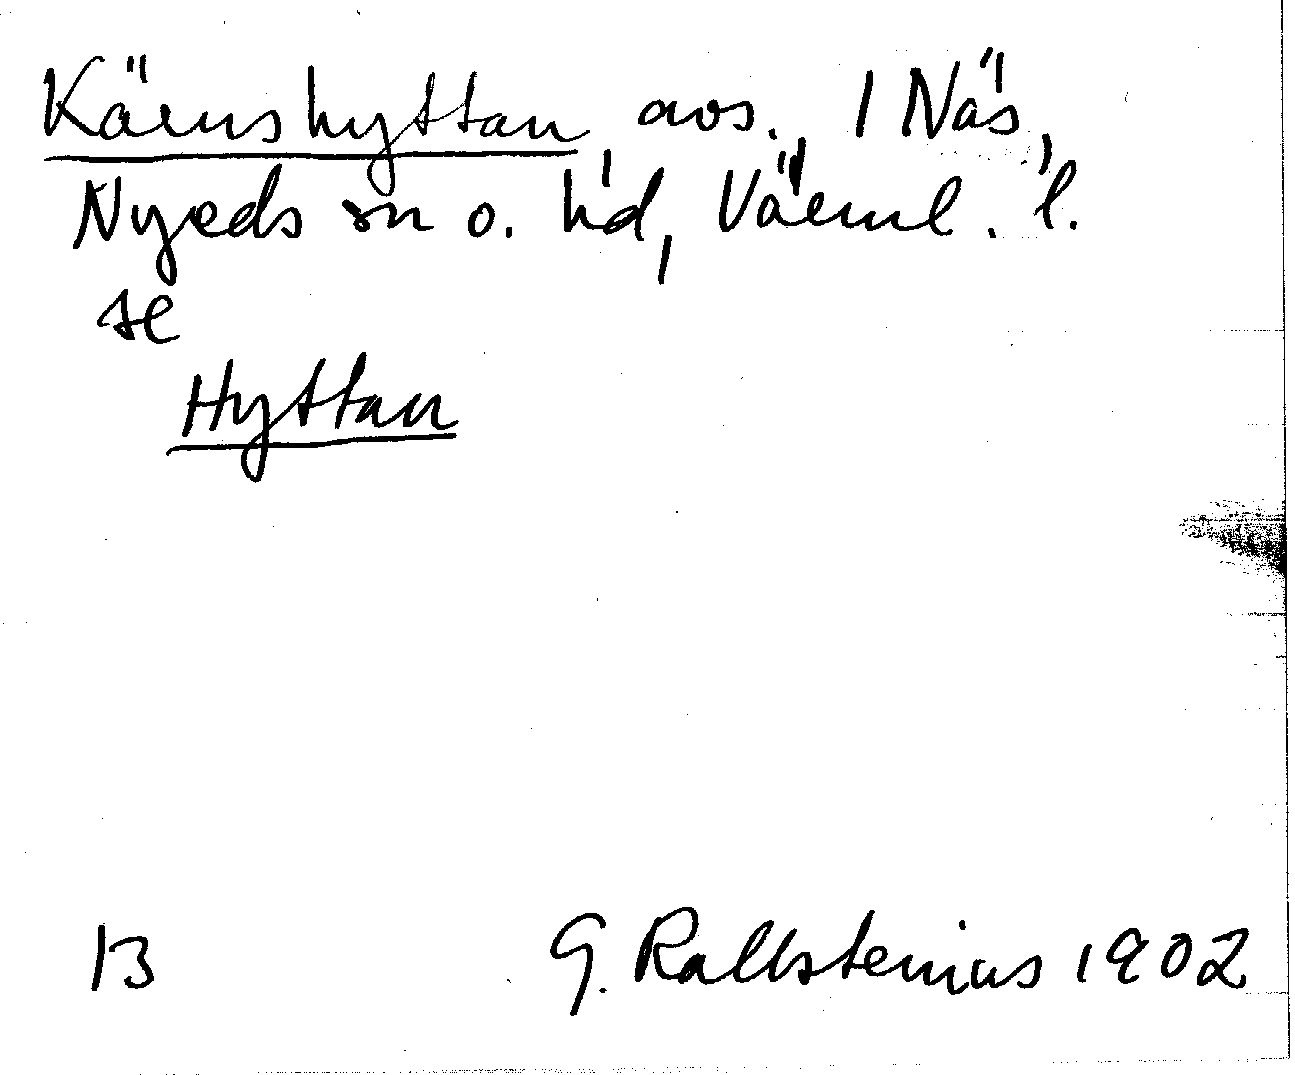 Kärnshyttan avs. 1 Näs,
Nyeds sn o. hd, Värml. l.
se
Hyttan
13 G. Kallstenius 1902